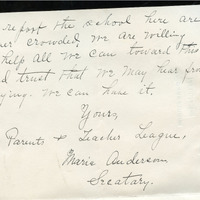 report the school here are
crowded, we are willing
help all we can toward this
d trust that we may hear from
ying. we can have it.
Yours,
Parents & Teacher League,
Marie Anderson
Secatary.